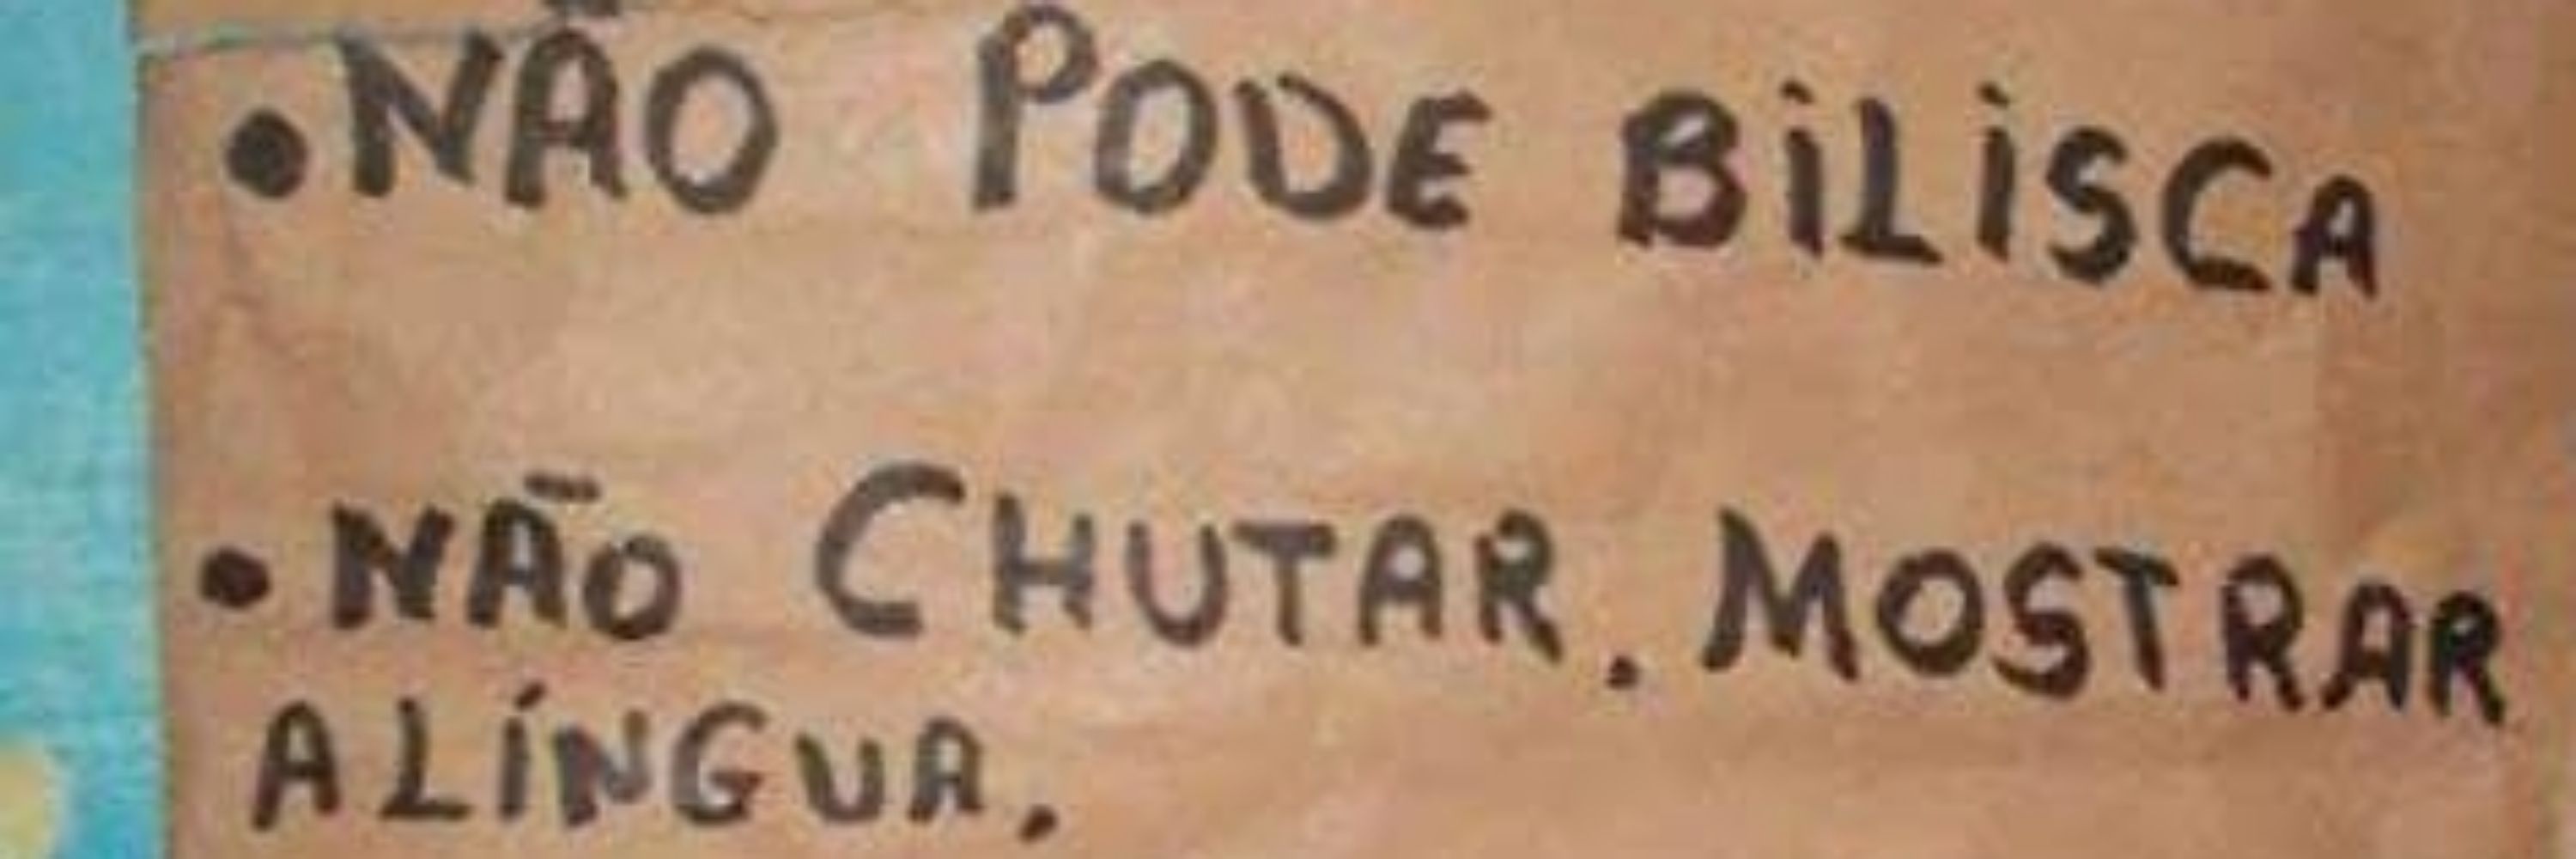 •NÃO PODE BiLiSCA
•NÃO CHUTAR. MOSTRAR
A LÍNGUA.